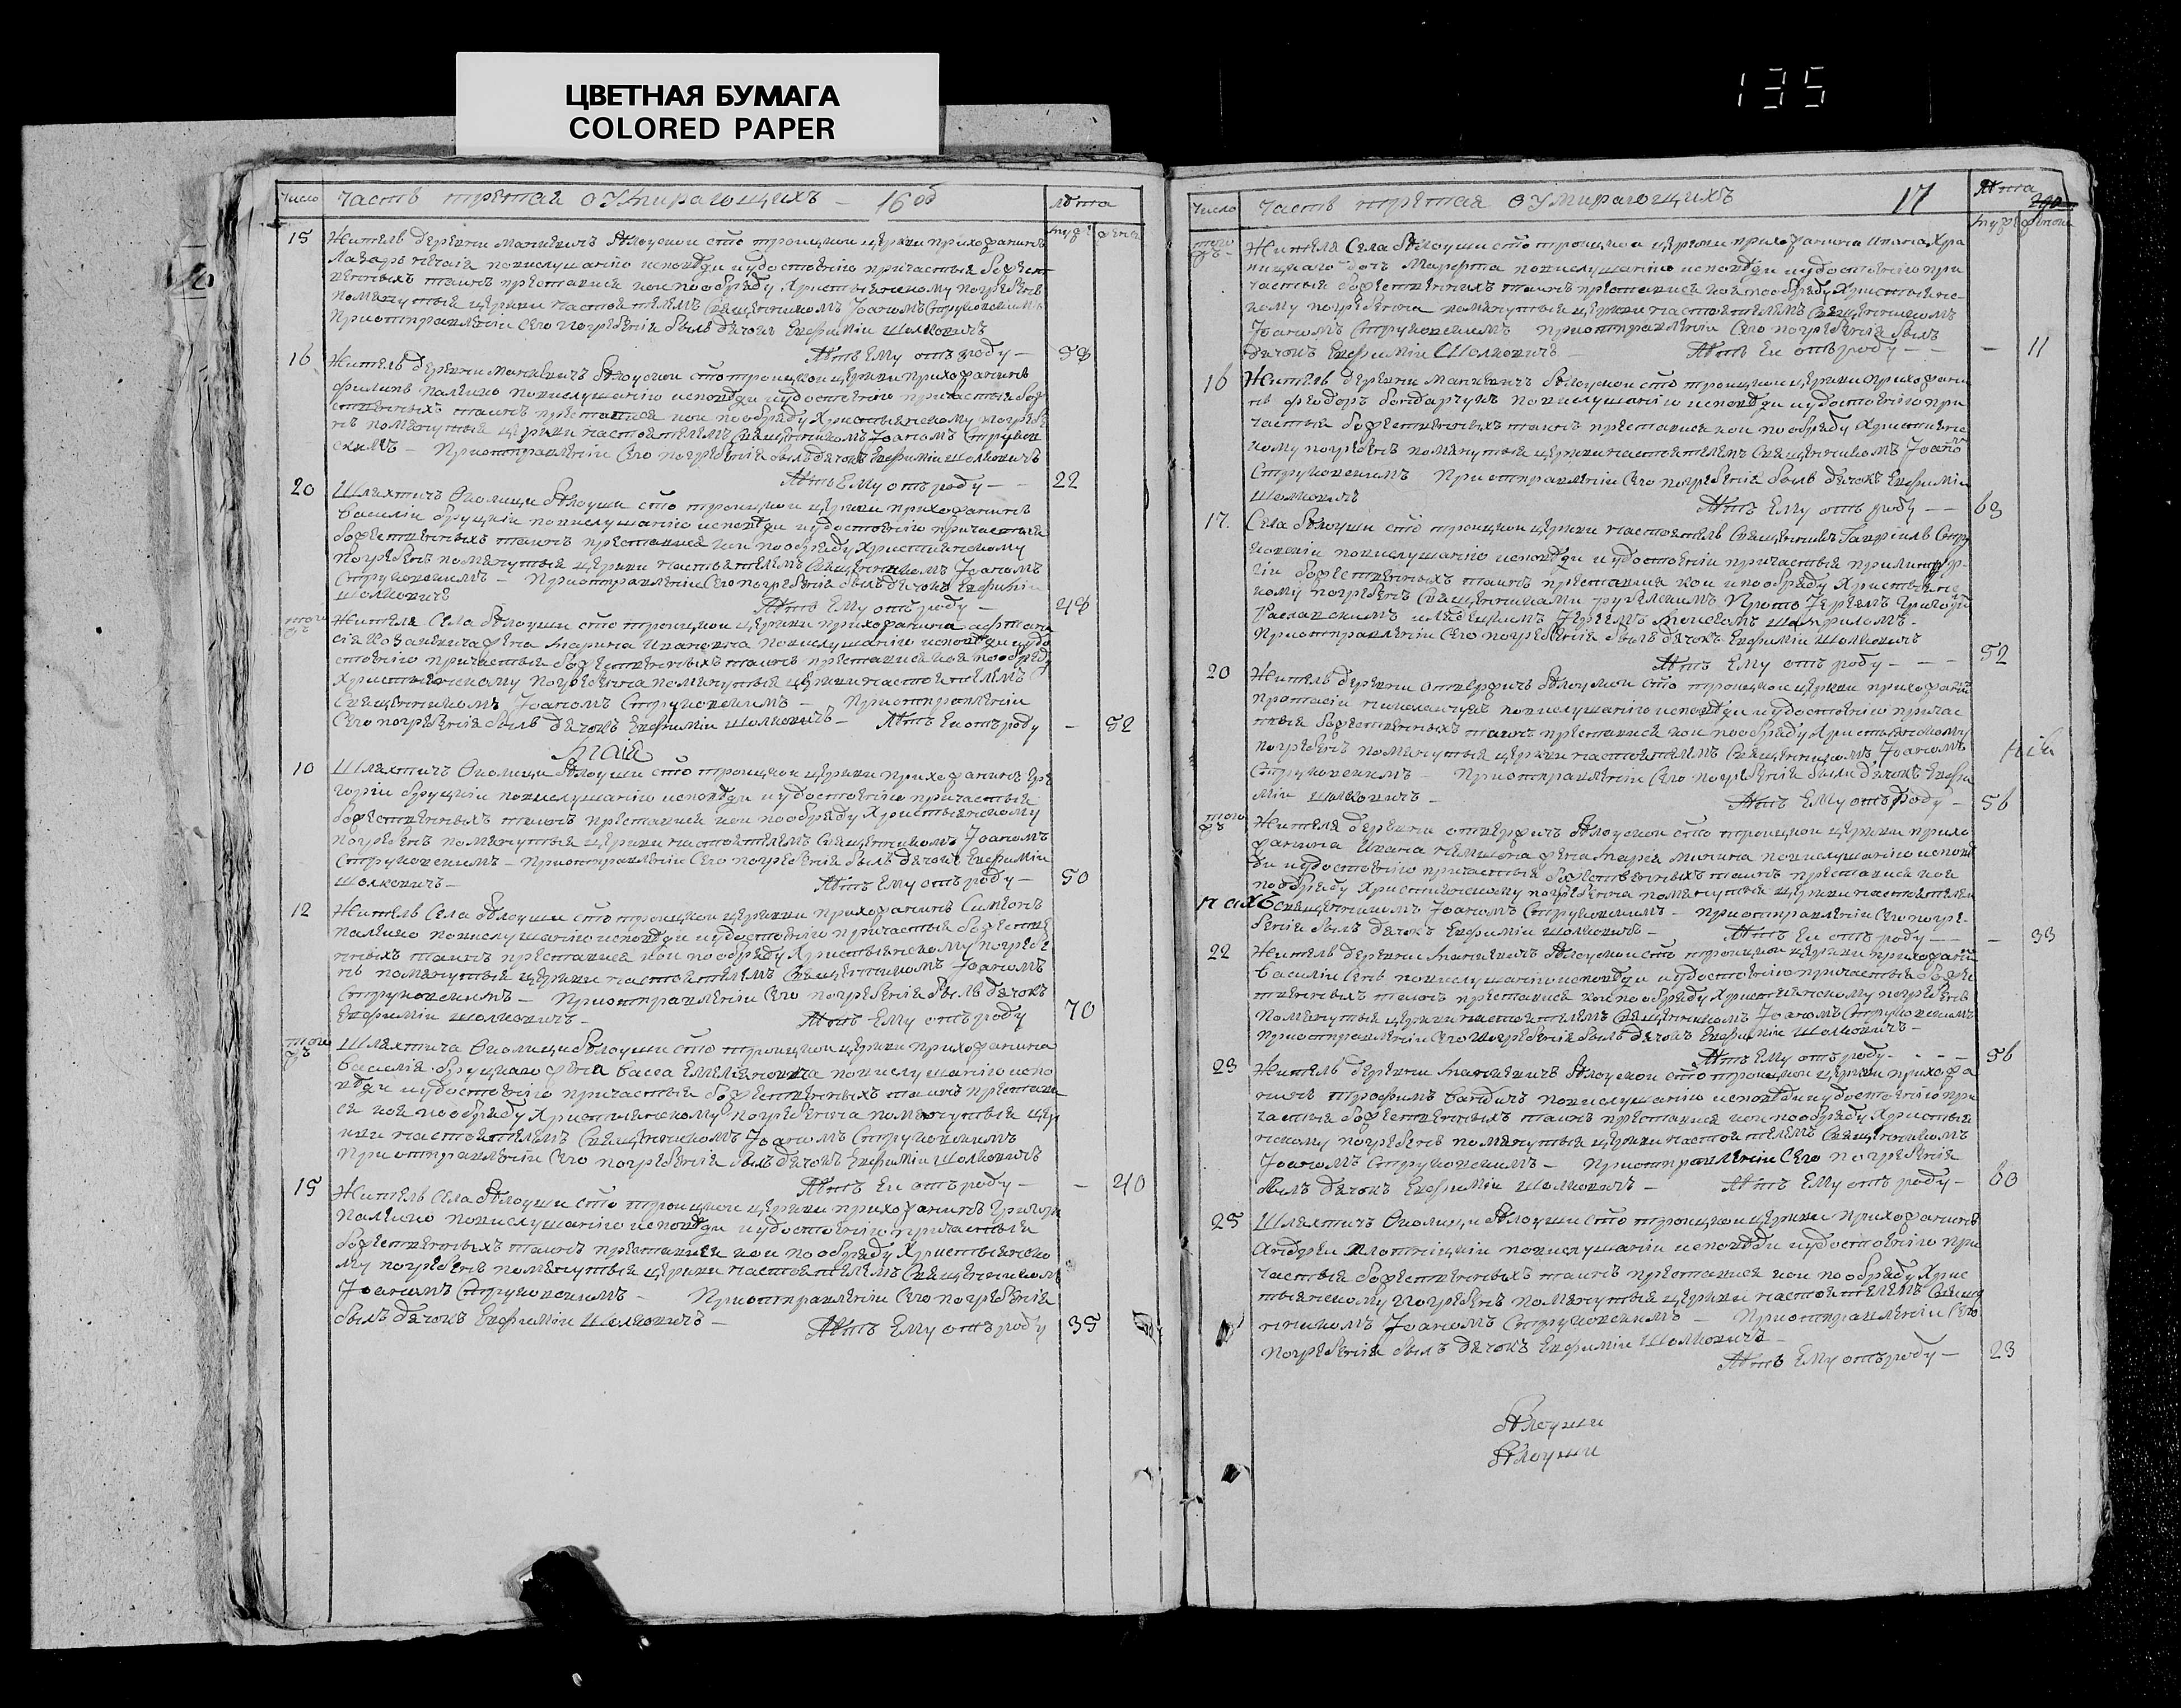 ЦВЕТНАЯ БУМАГА
COLORED PAPER
135
Число Часть третая о Умирающихъ — 16 Лѣта
муж: жен
15 Житель деревни Манкевичъ Бѣлоуской сто троицкой церкви прихожанинъ
Лазарь по выслушанію исповѣди и удостоенію причастыя божест
венныхъ таинъ преставися кой по обряду Христыянскому погребенъ
помянутыя церкви настоятелемъ Священникомъ Іоаномъ Струковскимъ
При отправленіи Сего погребенія былъ дячокъ Евфимій Шолковичъ
Лѣтъ Ему отъ роду — 58
16 Житель деревни Манкевичъ Бѣлоуской сто троицкой церкви прихожанинъ
Филипъ Палешко по выслушанію исповѣди и удостоенію причастыя бож
ственныхъ таинъ преставися кой по обряду Христыянскому погребе
нъ помянутыя церкви настоятелемъ Священникомъ Іоаномъ Струков
скимъ — При отправленіи Сего погребенія былъ дячокъ Евфимій Шолковичъ
Лѣтъ Ему отъ роду — 22
20 Шляхтичъ Околицы Бѣлоуши сто троицкой церкви прихожанинъ
Василій Бруцкій по выслушанію исповѣди и удостоенію причастыя
божественныхъ таинъ преставися кой по обряду Християнскому
погребенъ помянутыя церкви настоятелемъ Священникомъ Іоаномъ
Струковскимъ — При отправленіи Сего погребенія былъ дячокъ Евфимій
Шолковичъ Лѣтъ Ему отъ роду — 48
того жъ Жителя Села Бѣлоуши сто троицкой церкви прихожанина Афтана
сія Козакевича жена Марина Иванова по выслушанію исповѣди и удо
стоенію причастыя божественныхъ таинъ преставися коя по обряду
Христыянскому погребенна помянутыя церкви настоятелемъ
Священникомъ Іоаномъ Струковскимъ — При отправленіи
Сего погребенія былъ дячокъ Евфимій Шолковичъ — Лѣтъ Ей отъ роду — 52
Маія
10 Шляхтичъ Околицы Бѣлоуши сто троицкой церкви прихожанинъ Гри
горій Бруцкій по выслушанію исповѣди и удостоенію причастыя
божественныхъ таинъ преставися кой по обряду Христыянскому
погребенъ помянутыя церкви настоятелемъ Священникомъ Іоаномъ
Струковскимъ — При отправленіи Сего погребенія былъ дячокъ Евфимій
Шолковичъ — Лѣтъ Ему отъ роду — 50
12 Житель Села Бѣлоуши сто троицкой церкви прихожанинъ Симеонъ
Палешко по выслушанію исповѣди и удостоенію причастыя божестве
нныхъ таинъ преставися кой по обряду Христыянскому погребе
нъ помянутыя церкви настоятелемъ Священникомъ Іоаномъ
Струковскимъ — При отправленіи Сего погребенія былъ дячокъ
Евфимій Шолковичъ — Лѣтъ Ему отъ роду 70
того жъ Шляхтича Околицы Бѣлоуши сто троицкой церкви прихожанина
Василія Бруцкаго жена Васса Емеліянова по выслушанію испо
вѣди и удостоенію причастыя божественныхъ таинъ престави
ся коя по обряду Християнскому погребенна помянутыя цер
кви настоятелемъ Священникомъ Іоаномъ Струковскимъ
При отправленіи Сего погребенія былъ дячокъ Евфимій Шолковичъ
Лѣтъ Ей отъ роду — — 40
15 Житель Села Бѣлоуши сто троицкой церкви прихожанинъ Григори
Палешко по выслушанію исповѣди и удостоенію причастыя
божественныхъ таинъ преставися кой по обряду Христыянско
му погребенъ помянутыя церкви настоятелемъ Священником
Іоаномъ Струковскимъ — При отправленіи Сего погребенія
былъ дячокъ Евфимій Шолковичъ — Лѣтъ Ему отъ роду 35
Число Часть третая о Умирающихъ 17 Лѣта
муж женск
того жъ Жителя Села Бѣлоуши сто троицкой церкви прихожанина Ивана Хра
пицкаго дочь Марфта по выслушанію исповѣди и удостоенію при
частыя божественныхъ таинъ преставися коя по обряду Христыянс
кому погребенна помянутыя церкви настоятелемъ Священникомъ
Іоаномъ Струковскимъ При отправленіи Сего погребенія былъ
дячокъ Евфимій Шолковичъ — Лѣтъ Ей отъ роду — — 11
16 Житель деревни Манкевичъ Бѣлоуской сто троицкой церкви прихожани
нъ Феодоръ Бондарчукъ по выслушанію исповѣди и удостоенію при
частыя божественныхъ таинъ преставися кой по обряду Християнс
кому погребенъ помянутыя церкви настоятелемъ Священникомъ Іоано
Струковскимъ При отправленіи Сего погребенія былъ дячокъ Евфимій
Шолковичъ Лѣтъ Ему отъ роду — — 63
17. Села Бѣлоуши сто троицкой церкви настоятель Священникъ Гавріилъ Стру
ковскій по выслушанію исповѣди и удостоеніи причастыя при литур
гіи божественныхъ таинъ преставися кой и по обряду Христыянс
кому погребенъ Священниками рубелскимъ Прото Іереемъ Григоріе
Раславскимъ и Іереемъ Моисеемъ
При отправленіи Сего погребенія былъ дячокъ Евфимій Шолковичъ
Лѣтъ Ему отъ роду — — — 52
20 Житель деревни Отвержичъ Бѣлоуской сто троицкой церкви прихожани
Протасій Николайчукъ по выслушанію исповѣди и удостоенію причас
тыя божественныхъ таинъ преставися кой по обряду Христыянскому
погребенъ помянутыя церкви настоятелемъ Священникомъ Іоаномъ
Струковскимъ — При отправленіи Сего погребенія былъ дячокъ Евфи
мій Шолковичъ — Лѣтъ Ему отъ роду — 56
того жъ Жителя деревни Отвержичъ Бѣлоуской сто троицкой церкви прихо
жанина Ивана жена Марія Минина по выслушанію исповѣ
ди и удостоенію причастыя божественныхъ таинъ преставися коя
по обряду Християнскому погребенна помянутыя церкви настоятелем
Священникомъ Іоаномъ Струковскимъ — При отправленіи Сего погре-
бенія былъ дячокъ Евфимій Шолковичъ — Лѣтъ Ей отъ роду — — 33
22 Житель деревни Манкевичъ Бѣлоуской сто троицкой церкви прихожани
Василій Сенъ по выслушанію исповѣди и удостоенію причастыя боже
ственныхъ таинъ преставися кой по обряду Християнскому погребенъ
помянутыя церкви настоятелемъ Священникомъ Іоаномъ Струковскимъ
При отправленіи Сего погребенія былъ дячокъ Евфимій Шолковичъ —
Лѣтъ Ему отъ роду — — 56
23 Житель деревни Манкевичъ Бѣлоуской сто троицкой церкви прихожа
нинъ Трофимъ по выслушанію исповѣди и удостоенію при
частыя божественныхъ таинъ преставися кой по обряду Христыя
нскому погребенъ помянутыя церкви настоятелемъ Священникомъ
Іоаномъ Струковскимъ — При отправленіи Сего погребенія
былъ дячокъ Евфимій Шолковичъ — Лѣтъ Ему отъ роду — 60
25 Шляхтичъ Околицы Бѣлоуши сто троицкой церкви прихожанинъ
Андрей Плотницкій по выслушаніи исповѣди и удостоенію при
частыя божественныхъ таинъ преставися кой по обряду Хрис
тыянскому погребенъ помянутыя церкви настоятелемъ Священ
никомъ Іоаномъ Струковскимъ — При отправленіи Сего
погребенія былъ дячокъ Евфимій Шолковичъ —
Лѣтъ Ему отъ роду — 23
Бѣлоуши
Бѣлоуши